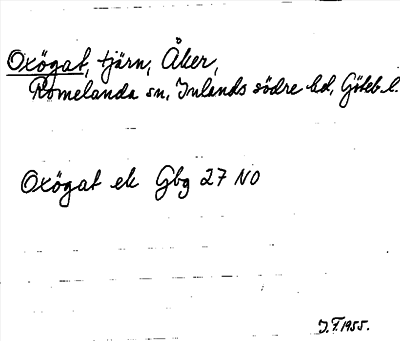 Oxögat, tjärn, Åker,
Romelanda sn, Inlands södre hd, Göteb. l.
Oxögat ek Gbg 27 NO
J.F. 1955.